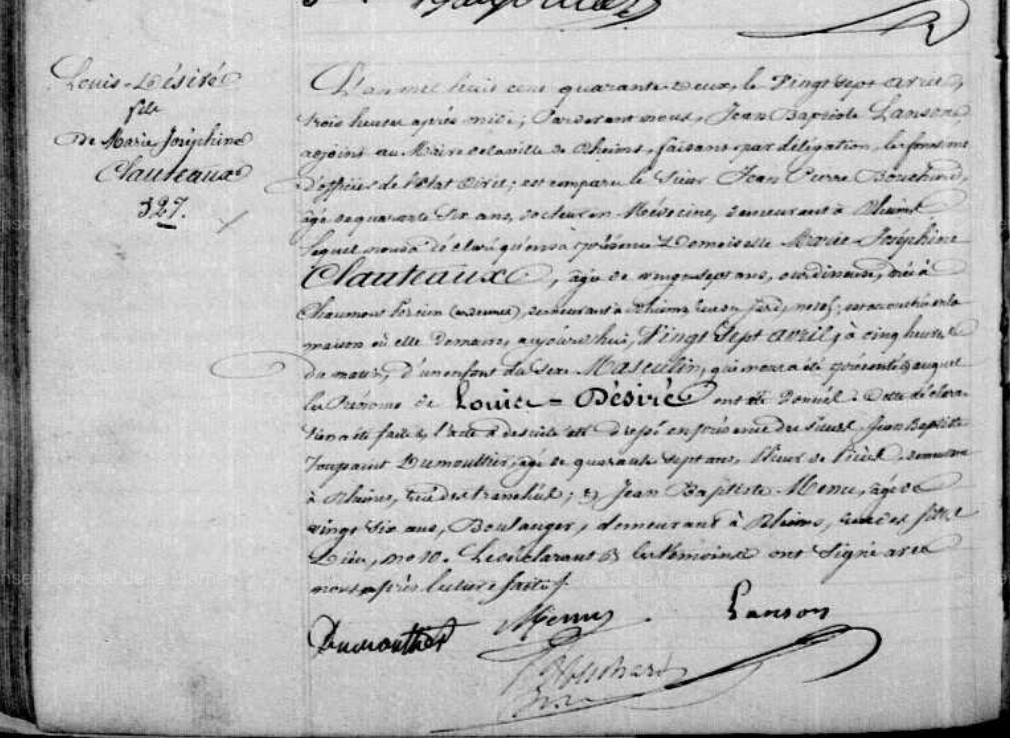 Louis-Désiré
fils
De Marie Joséphine
Clauteaux
327.
L'an mil huit cent quarante-Deux, le Vingt Sept avril,
trois heures après midi; Pardevant nous, Jean Baptiste Lanson
adjoint au Maire de la ville de Rheims, faisant par délégation, les fonctions
d'officier de l'Etat Civil; est comparu le Sieur Jean Pierre Bouchard,
âgé de quarante Six ans, docteur en Médecine, demeurant à Rheims
lequel nous a déclaré qu'en sa présence Demoiselle Marie-Joséphine
Clauteaux, âgée de vingt sept ans, ourdineuse, née à
Chaumont Porcien (ardennes), demeurant à Rheims est accouchée en la
maison où elle Demeure, aujourd'hui, Vingt Sept avril, à cinq heures
du matin, d'un enfant du Sexe Masculin, qui nous a été présenté & auquel
les Prénoms de Louis = Désiré ont été Donnés; Cette déclara-
tion a été faite & l'acte a de suite été dressé en présence des Sieurs Jean Baptiste
Toussaint Dumoultier, âgé de quarante sept ans, demeurant
à Rheims, rue des ; & Jean Baptiste Menu, âgé de
vingt six ans, Boulanger, demeurant à Rheims, rue
Dieu, no 10. Le déclarant & les témoins ont Signé avec
nous après lecture faite.
Dumoultier Menu Lanson
Bouchard